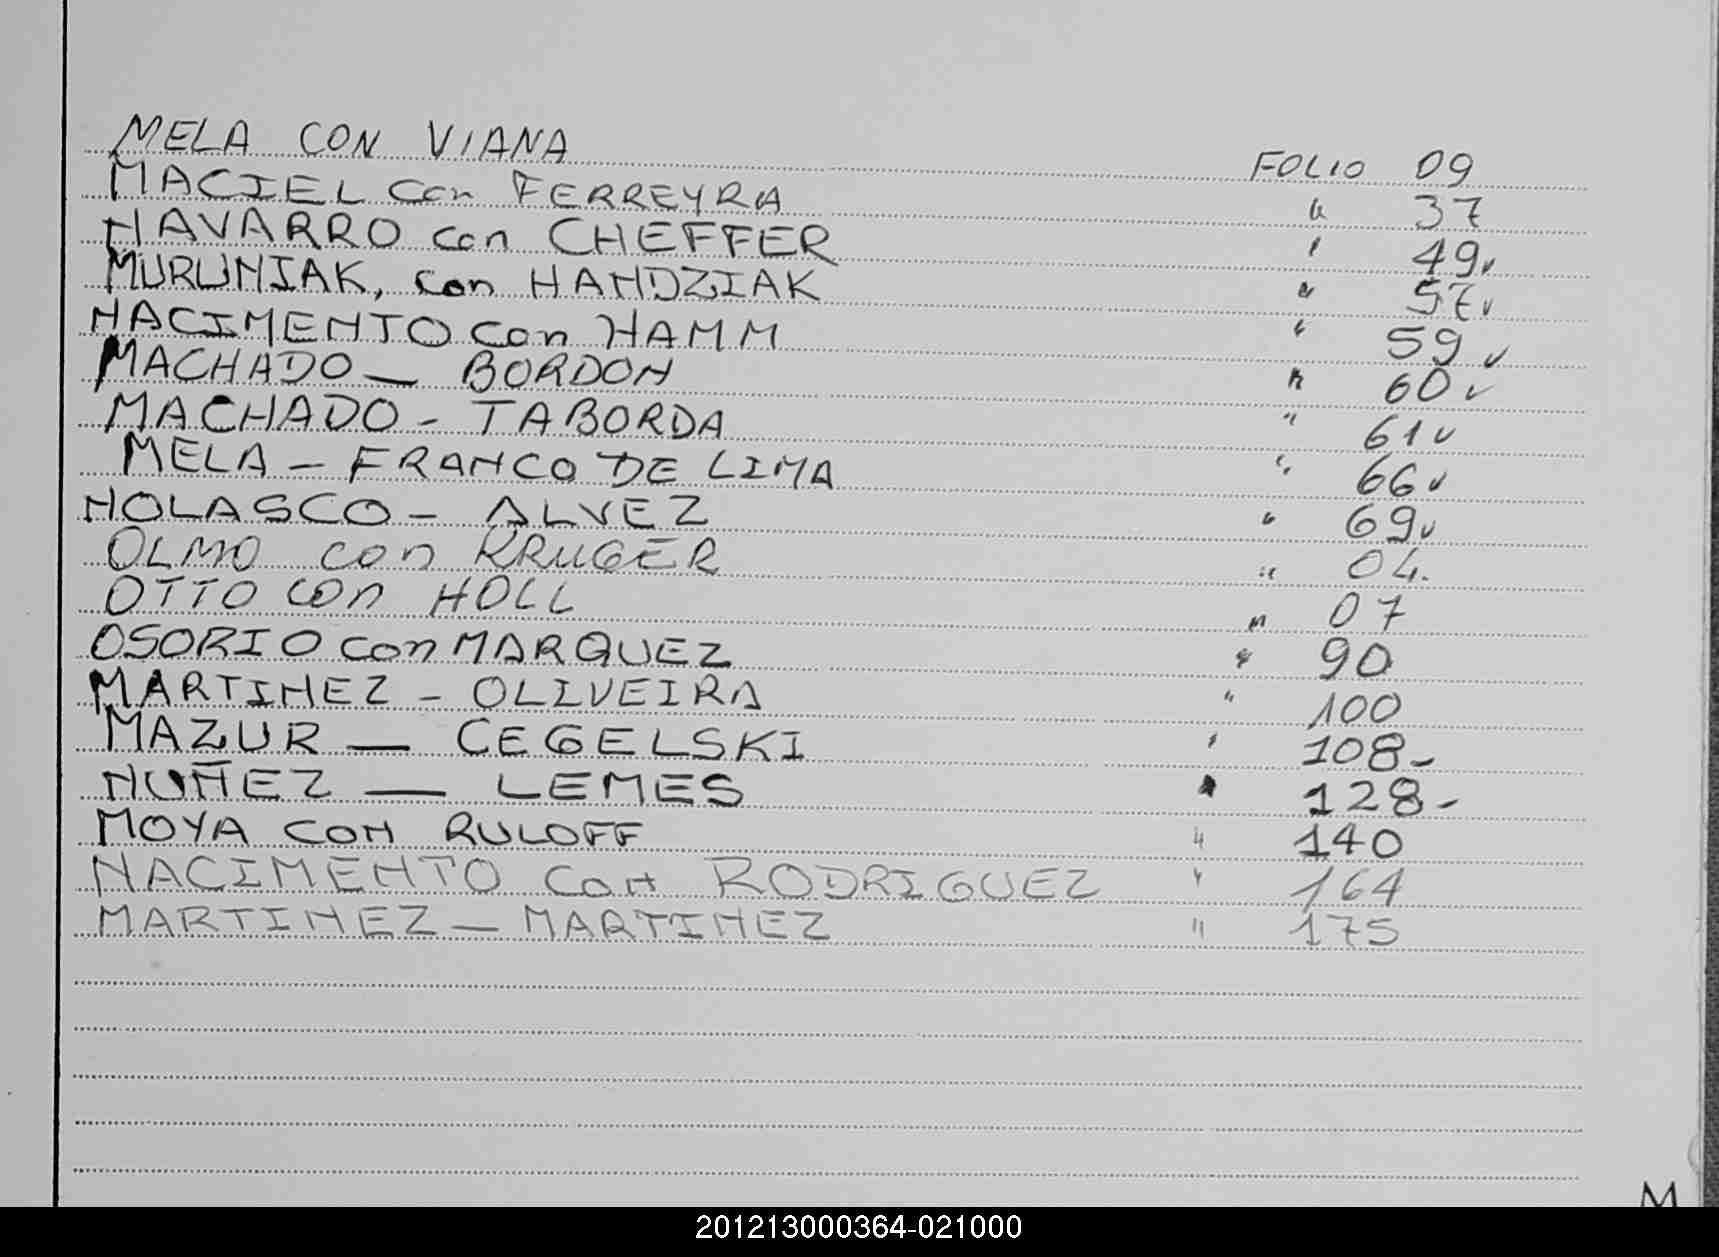 MELA CON VIANA FOLIO 09
MACIEL con FERREYRA " 37
NAVARRO con CHEFFER " 49v
MURUNIAK, con HANDZIAK " 57v
NACIMENTO con HAMM " 59v
MACHADO — BORDON " 60v
MACHADO - TABORDA " 61v
MELA - FRANCO DE LIMA " 66v
NOLASCO - ALVEZ " 69v
OLMO con KRUGER " 04.
OTTO con HOLL " 07
OSORIO con MARQUEZ " 90
MARTINEZ - OLIVEIRA " 100
MAZUR — CEGELSKI " 108-
NUÑEZ — LEMES " 128-
MOYA CON RULOFF " 140
NACIMENTO CON RODRIGUEZ " 164
MARTINEZ — MARTINEZ " 175
M
201213000364-021000